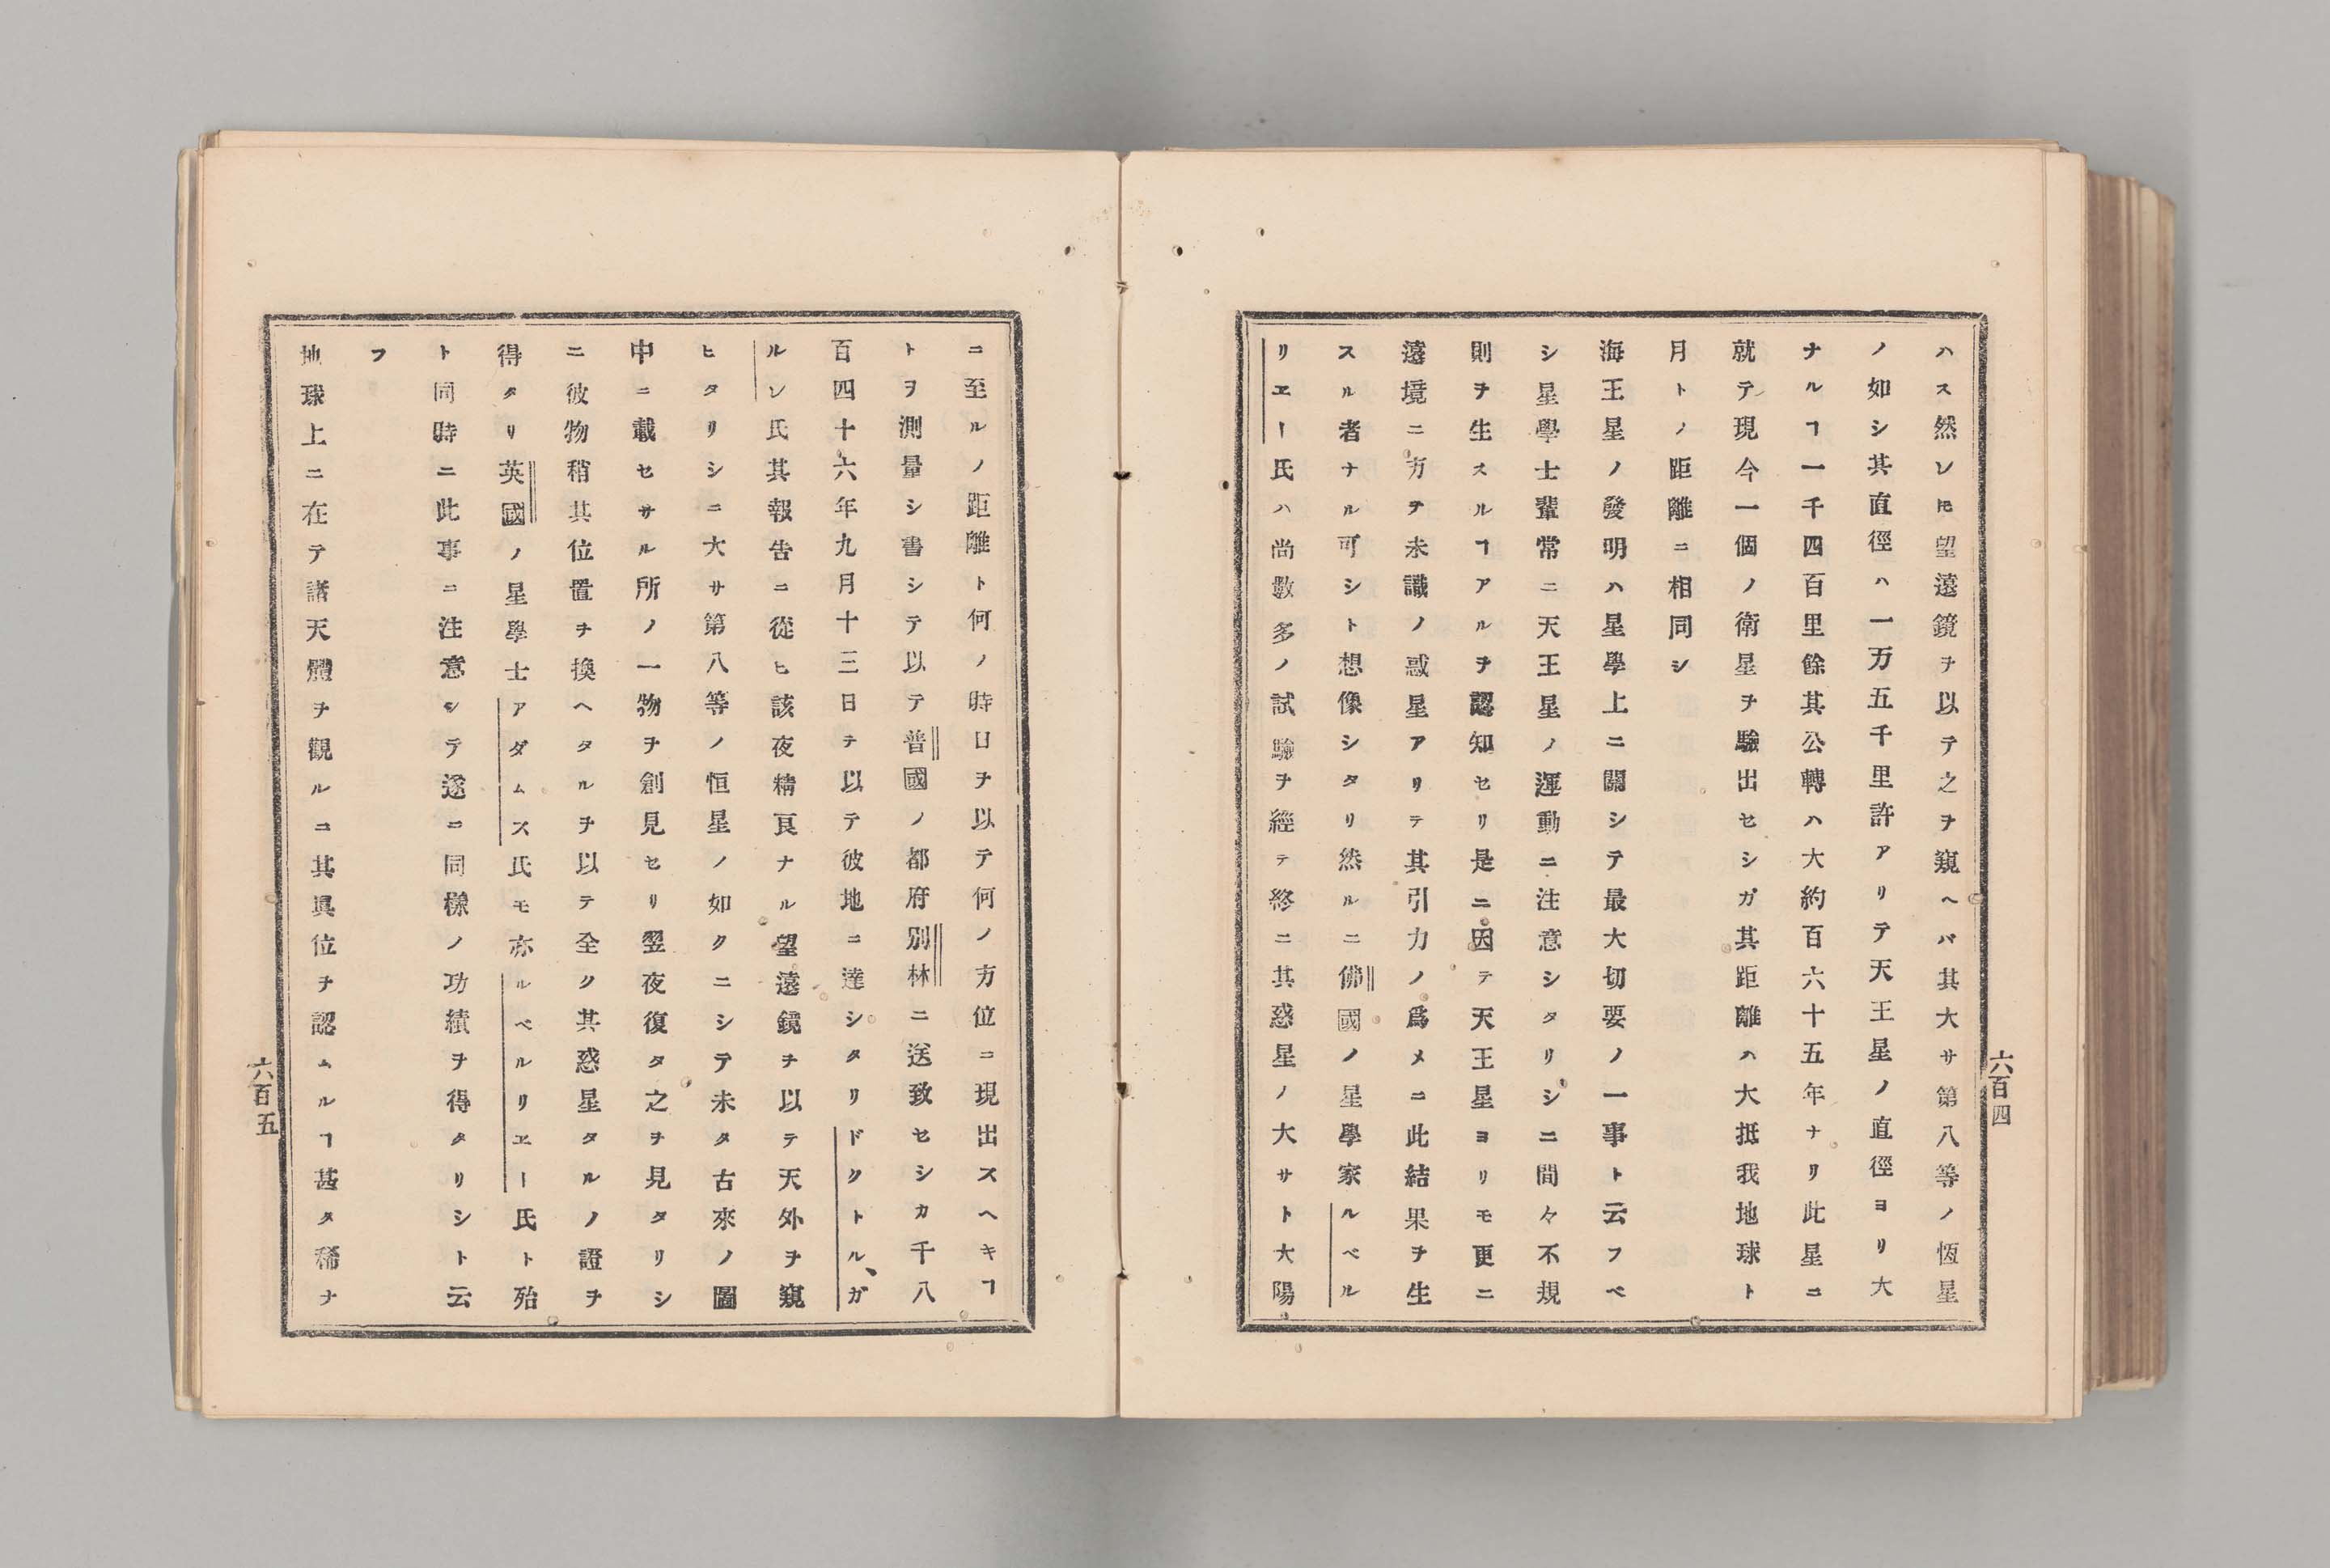 ハス然レ𪜈望遠鏡ヲ以テ之ヲ窺ヘバ其大サ第八等ノ恆星
ノ如シ其直徑ハ一万五千里許アリテ天王星ノ直徑ヨリ大
ナルヿ一千四百里餘其公轉ハ大約百六十五年ナリ此星ニ
就テ現今一個ノ衛星ヲ驗出セシガ其距離ハ大抵我地球ト
月トノ距離ニ相同シ
海王星ノ發明ハ星學上ニ關シテ最大切要ノ一事ト云フベ
シ星學士輩常ニ天王星ノ運動ニ注意シタリシニ間々不規
則ヲ生スルヿアルヲ認知セリ是ニ因テ天王星ヨリモ更ニ
遠境ニ方テ未識ノ惑星アリテ其引力ノ爲メニ此結果ヲ生
スル者ナル可シト想像シタリ然ルニ佛國ノ星學家ルベル
リヱー氏ハ尚數多ノ試驗ヲ經テ終ニ其惑星ノ大サト大陽
六百四
ニ至ルノ距離ト何ノ時日ヲ以テ何ノ方位ニ現出スヘキヿ
トヲ測量シ書シテ以テ普國ノ都府別林ニ送致セシカ千八
百四十六年九月十三日テ以テ彼地ニ達シタリドクトル、ガ
ルレ氏其報告ニ從ヒ該夜精良ナル望遠鏡ヲ以テ天外ヲ窺
ヒタリシニ大サ第八等ノ恒星ノ如クニシテ未タ古來ノ圖
中ニ載セサル所ノ一物ヲ創見セリ翌夜復タ之ヲ見タリシ
ニ彼物稍其位置ヲ換ヘタルヲ以テ全ク其惑星タルノ證ヲ
得タリ英國ノ星學士アダムス氏モ亦ルベルリヱー氏ト殆
ト同時ニ此事ニ注意シテ遂ニ同樣ノ功績ヲ得タリシト云
フ
地球上ニ在テ諸天體ヲ觀ルニ其眞位ヲ認ムルヿ甚タ稀ナ
六百五